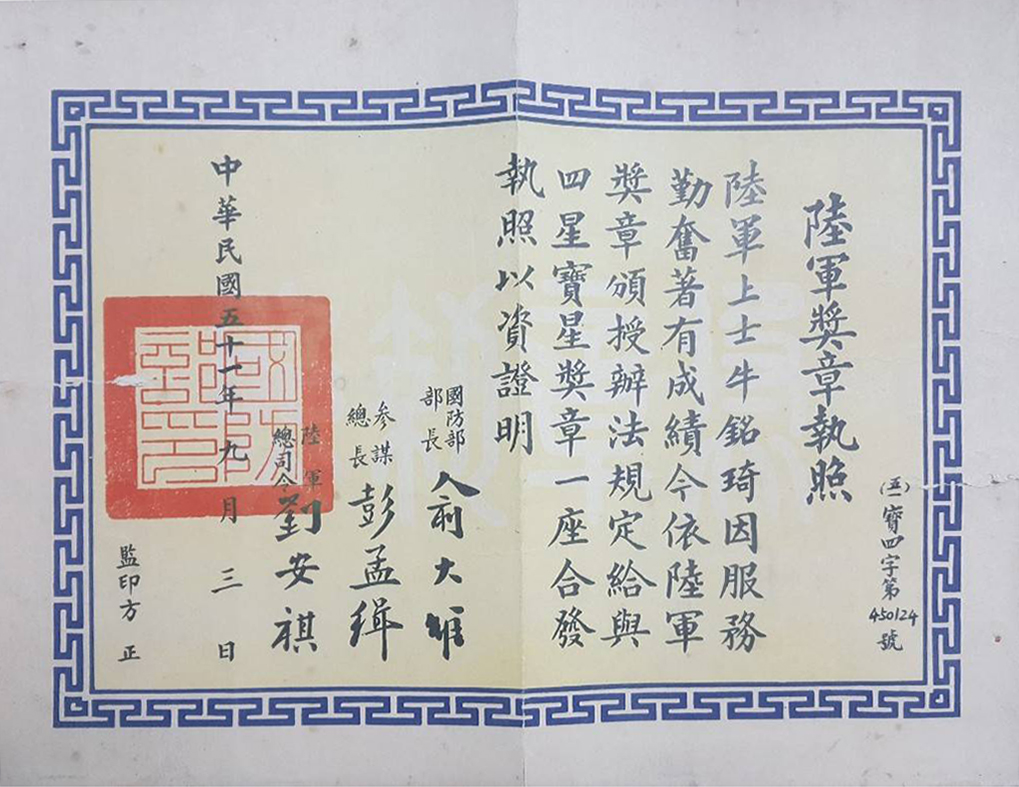 陸軍獎章執照
(五一)寶四字第450124號
陸軍上士牛銘琦因服務
勤奮著有成績今依陸軍
獎章頒授辦法規定給與
四星寶星獎章一座合發
執照以資證明
國防部部長 俞大維
參謀總長 彭孟緝
陸軍總司令 劉安祺
中華民國五十一年九月三日
監印方正